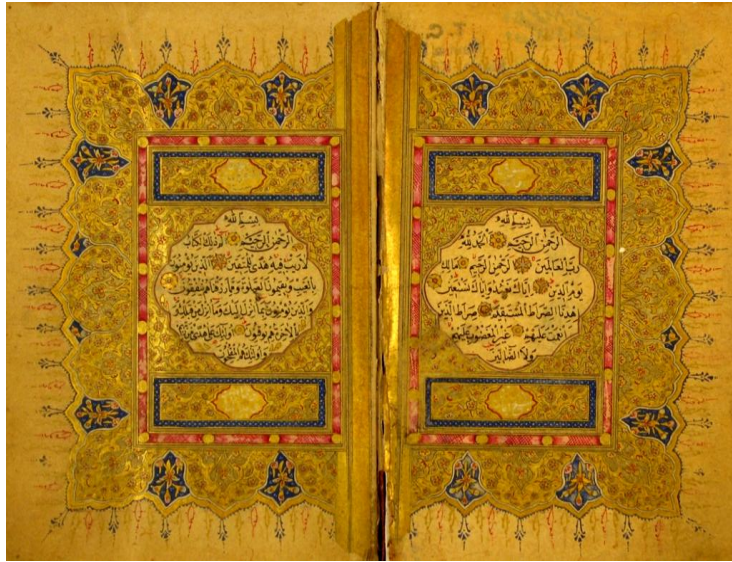 بسم الله
الرحمن الرحيم الحمد لله
رب العالمين الرحمن الرحيم مالك
يوم الدين اياك نعبد واياك نستعين
اهدنا الصراط المستقيم صراط الذين
انعمت عليهم غير المغضوب عليهم
ولا الضالين
بسم الله
الرحمن الرحيم الم ذلك الكتاب
لا ريب فيه هدى للمتقين الذين يؤمنون
بالغيب ويقيمون الصلوة ومما رزقناهم ينفقون
والذين يؤمنون بما انزل اليك وما انزل من قبلك
وبالاخرة هم يوقنون اولئك على هدى من ربهم
واولئك هم المفلحون